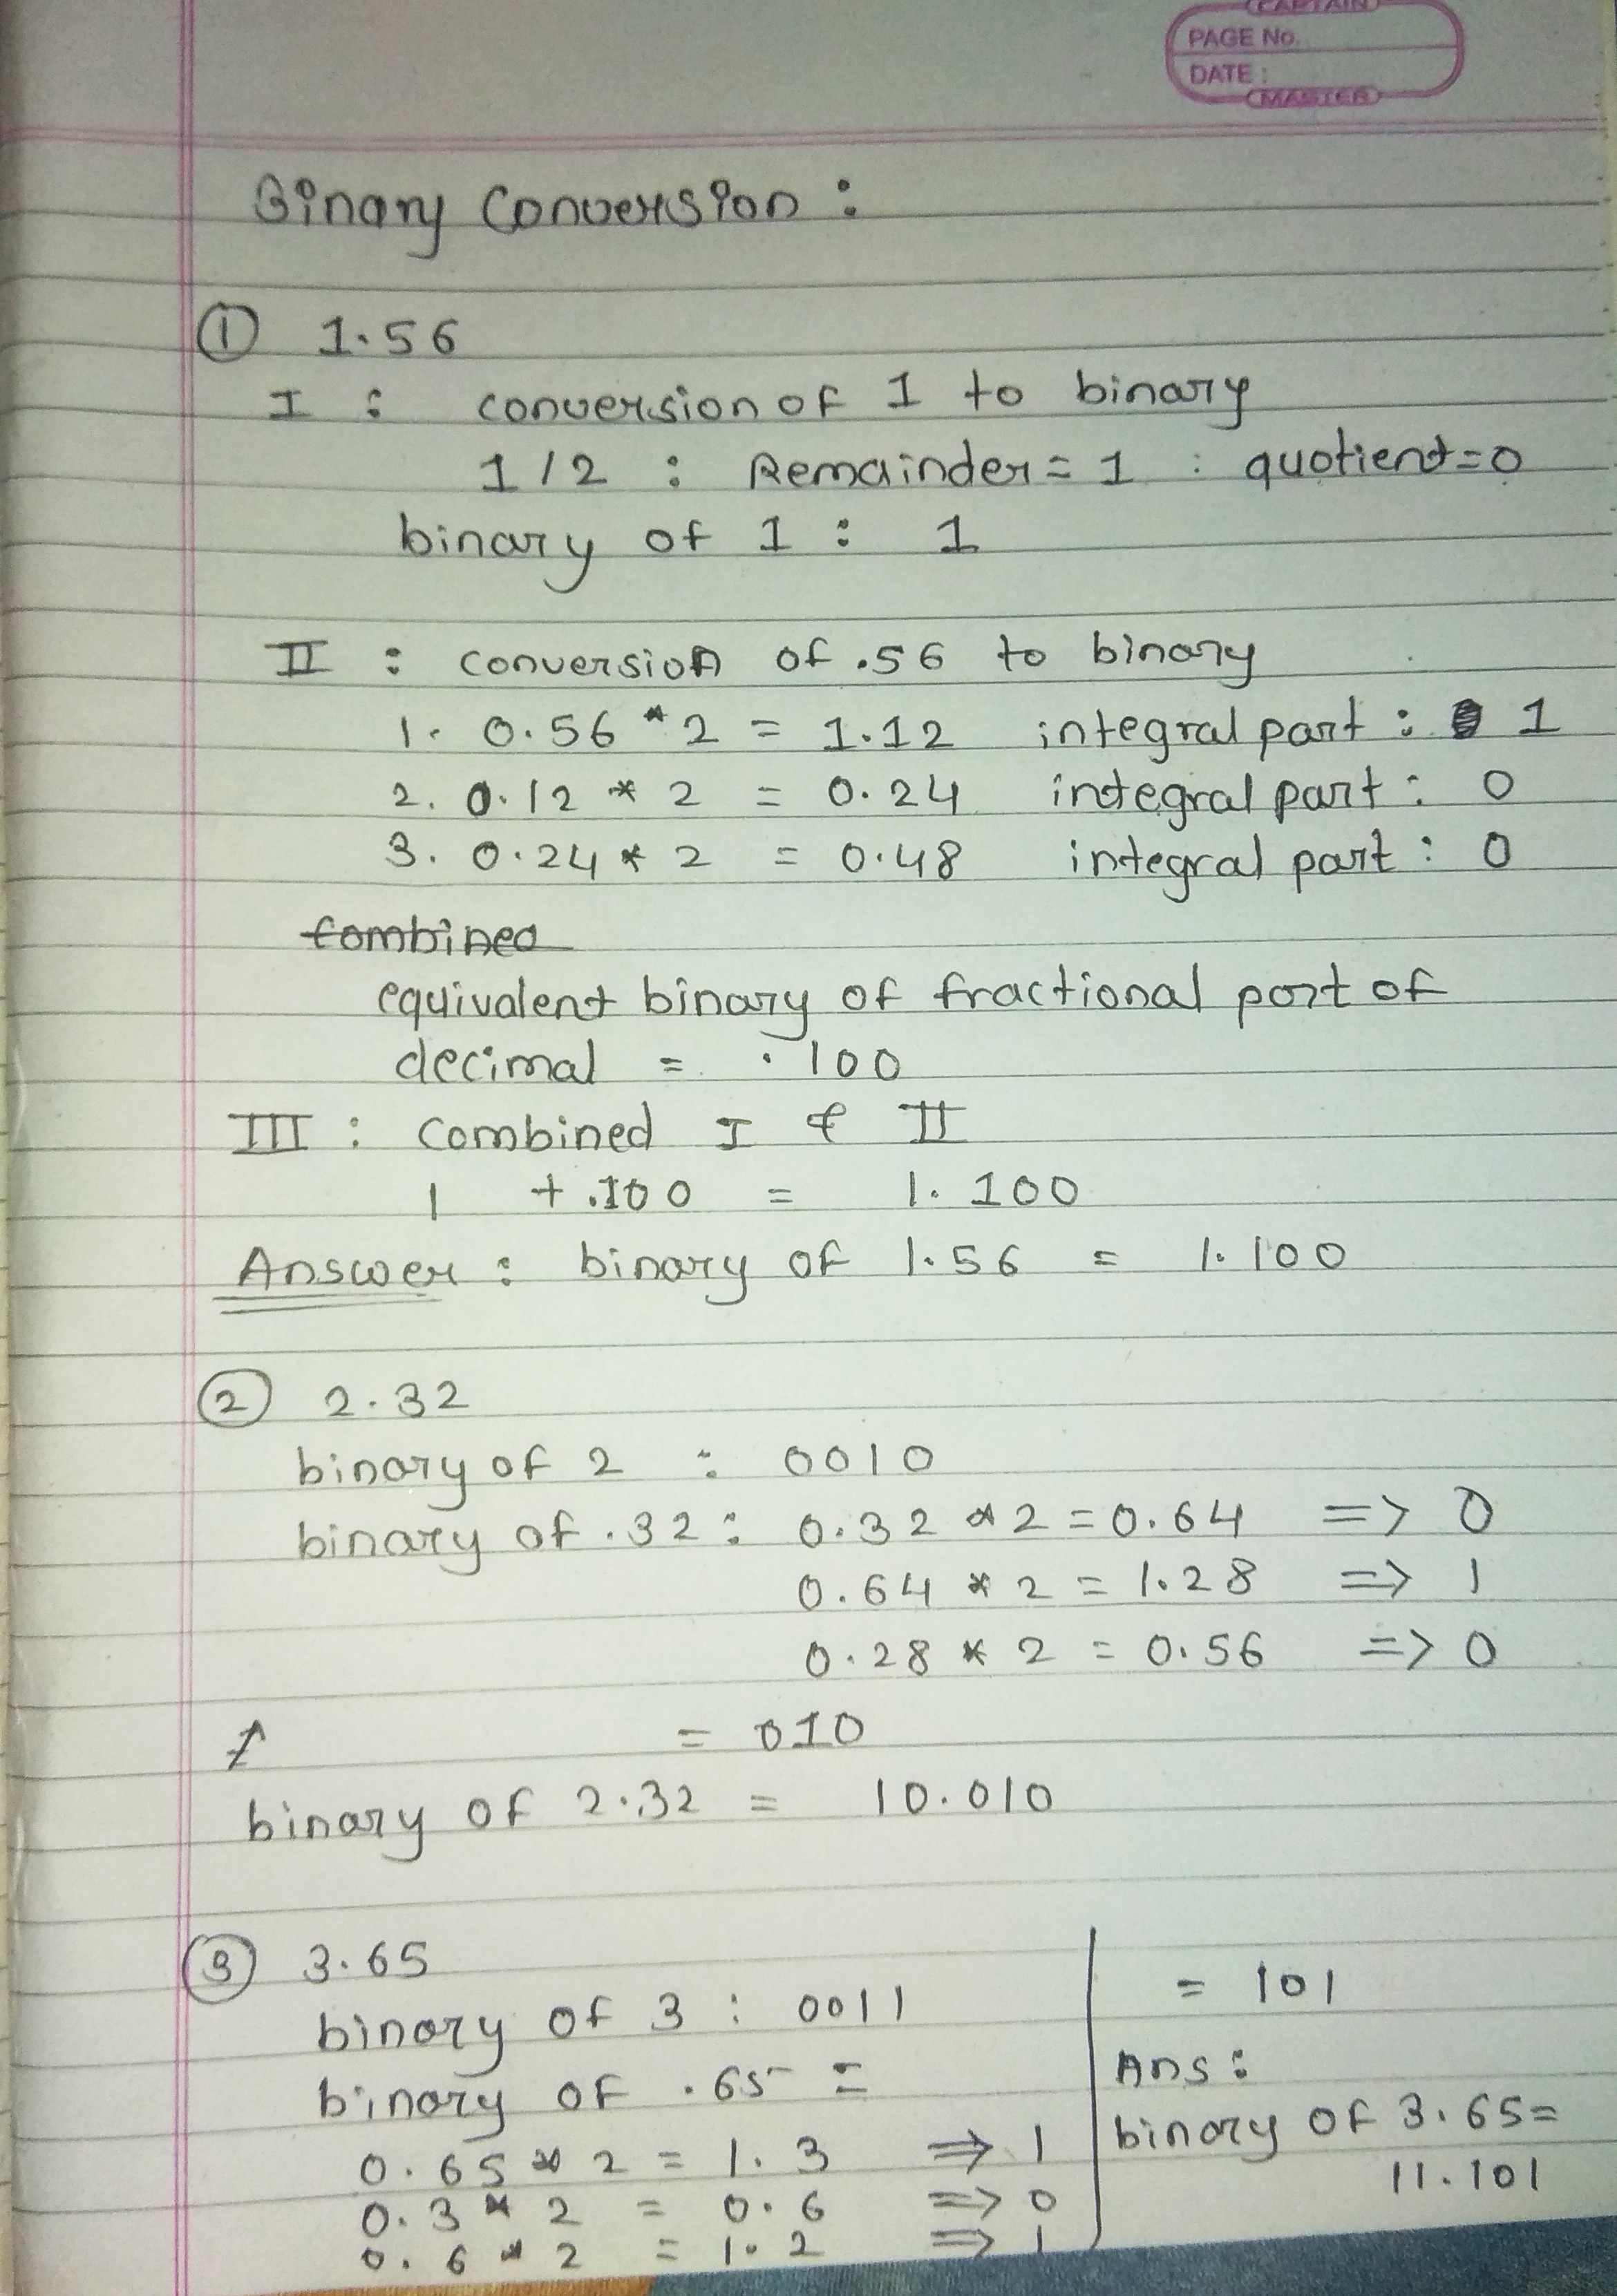 CAPTAIN
PAGE No.
DATE :
MASTER
Binary Conversion :
① 1.56
I : conversion of 1 to binary
1/2 : Remainder = 1 : quotient = 0
binary of 1 : 1
II : conversion of .56 to binary
1. 0.56 * 2 = 1.12 integral part : 1
2. 0.12 * 2 = 0.24 integral part : 0
3. 0.24 * 2 = 0.48 integral part : 0
combined
equivalent binary of fractional part of
decimal = .100
III : combined I & II
1 + .100 = 1.100
Answer : binary of 1.56 = 1.100
② 2.32
binary of 2 : 0010
binary of .32 : 0.32 * 2 = 0.64 => 0
0.64 * 2 = 1.28 => 1
0.28 * 2 = 0.56 => 0
= 010
binary of 2.32 = 10.010
③ 3.65
binary of 3 : 0011
binary of .65 =
0.65 * 2 = 1.3 => 1
0.3 * 2 = 0.6 => 0
0.6 * 2 = 1.2 => 1
= 101
Ans :
binary of 3.65 =
11.101